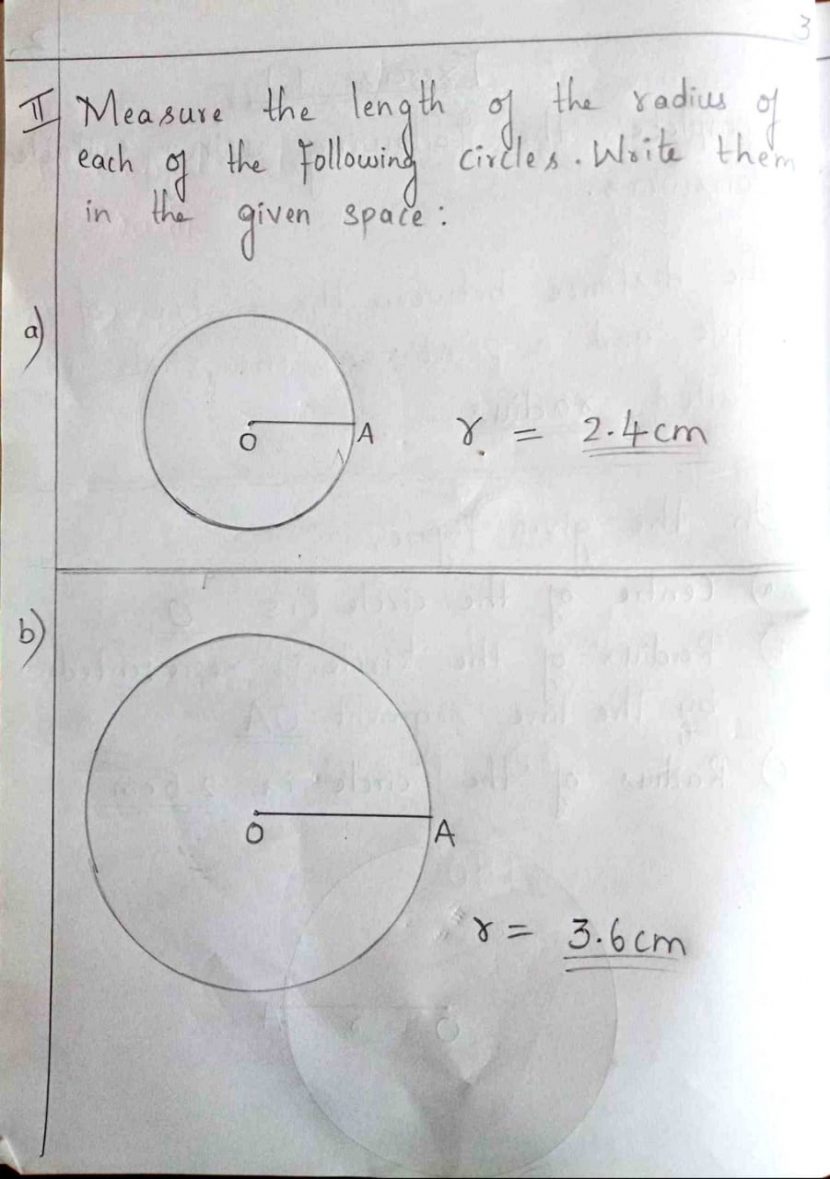 3
II Measure the length of the radius of
each of the following circles. Write them
in the given space:
a)
O A
r = 2.4cm
b)
O A
r = 3.6cm